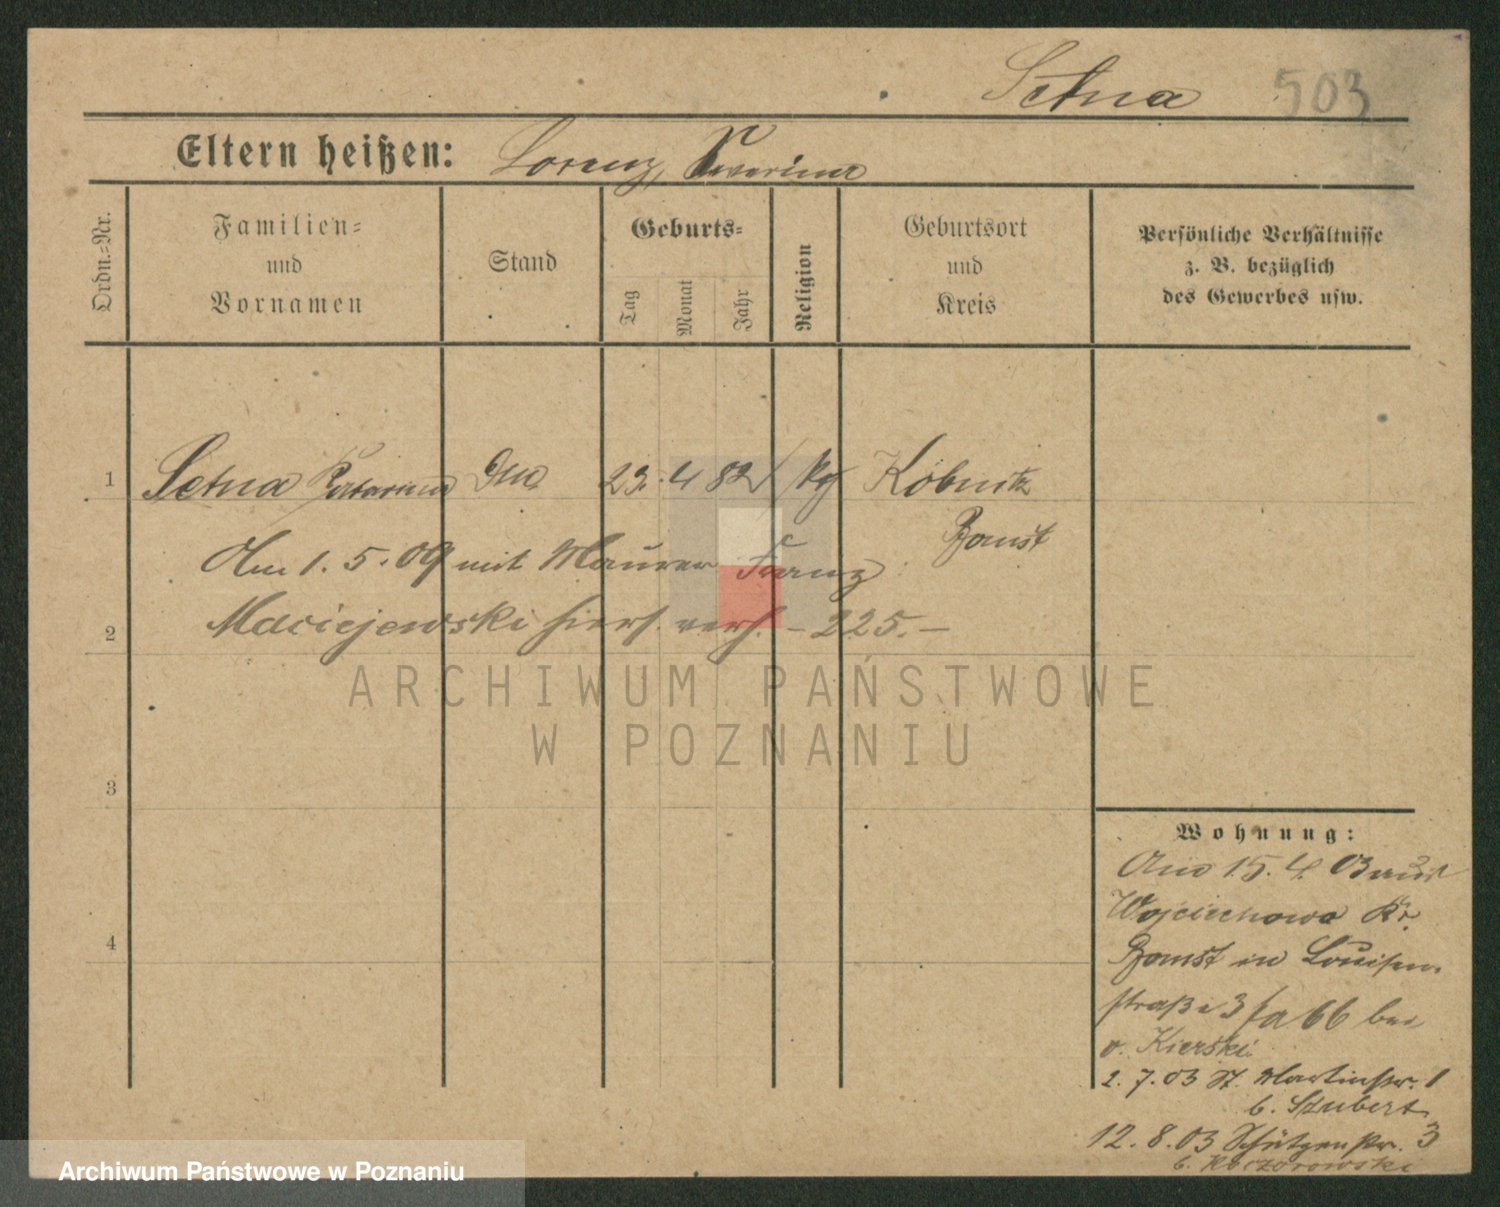 Setna 503
Eltern heißen: Lorenz, Severina
Ordn.-Nr.
Familien-
und
Vornamen
Stand
Geburts-
Tag
Monat
Jahr
Religion
Geburtsort
und
Kreis
Persönliche Verhältnisse
z. B. bezüglich
des Gewerbes usw.
1 Setna Katarina 23. 4 82 Köbnitz
Bomst
Am 1. 5. 09 mit Maurer Franz
2 Maciejewski hiers. verh. – 225. –
ARCHIWUM PAŃSTWOWE
W POZNANIU
3
4
Wohnung:
Am 15. 4. 03 aus
Wojciechowo Kr.
Bomst in Louisen
straße 3 66 bei
v. Kierski
2. 7. 03 St. Martinstr. 1
b. Szubert
12. 8. 03 Schützenstr. 3
b. Koczorowski
Archiwum Państwowe w Poznaniu